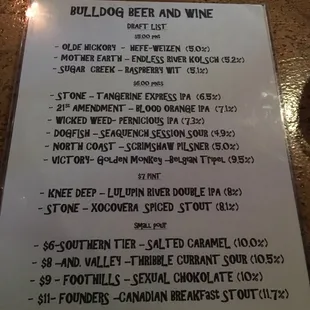 BULLDOG BEER AND WINE
DRAFT LIST
- OLDE HICKORY - HEFE-WEIZEN (5.0%)
- MOTHER EARTH - ENDLESS RIVER KOLSCH (5.2%)
- SUGAR CREEK - RASPBERRY WIT (5.1%)
- STONE - TANGERINE EXPRESS IPA (6.5%)
- 21ST AMENDMENT - BLOOD ORANGE IPA (7.1%)
- WICKED WEED- PERNICIOUS IPA (7.3%)
- DOGFISH - SEAQUENCH SESSION SOUR (4.9%)
- NORTH COAST - SCRIMSHAW PILSNER (5.0%)
- VICTORY- GOLDEN MONKEY -BELGIAN TRIPEL (9.5%)
$7 PINT
- KNEE DEEP - LULUPIN RIVER DOUBLE IPA (8%)
- STONE - XOCOVERA SPICED STOUT (8.1%)
SMALL POUR
- $6-SOUTHERN TIER - SALTED CARAMEL (10.0%)
- $8 -AND. VALLEY -THRIBBLE CURRANT SOUR (10.5%)
- $9 - FOOTHILLS - SEXUAL CHOKOLATE (10%)
- $11- FOUNDERS -CANADIAN BREAKFAST STOUT(11.7%)